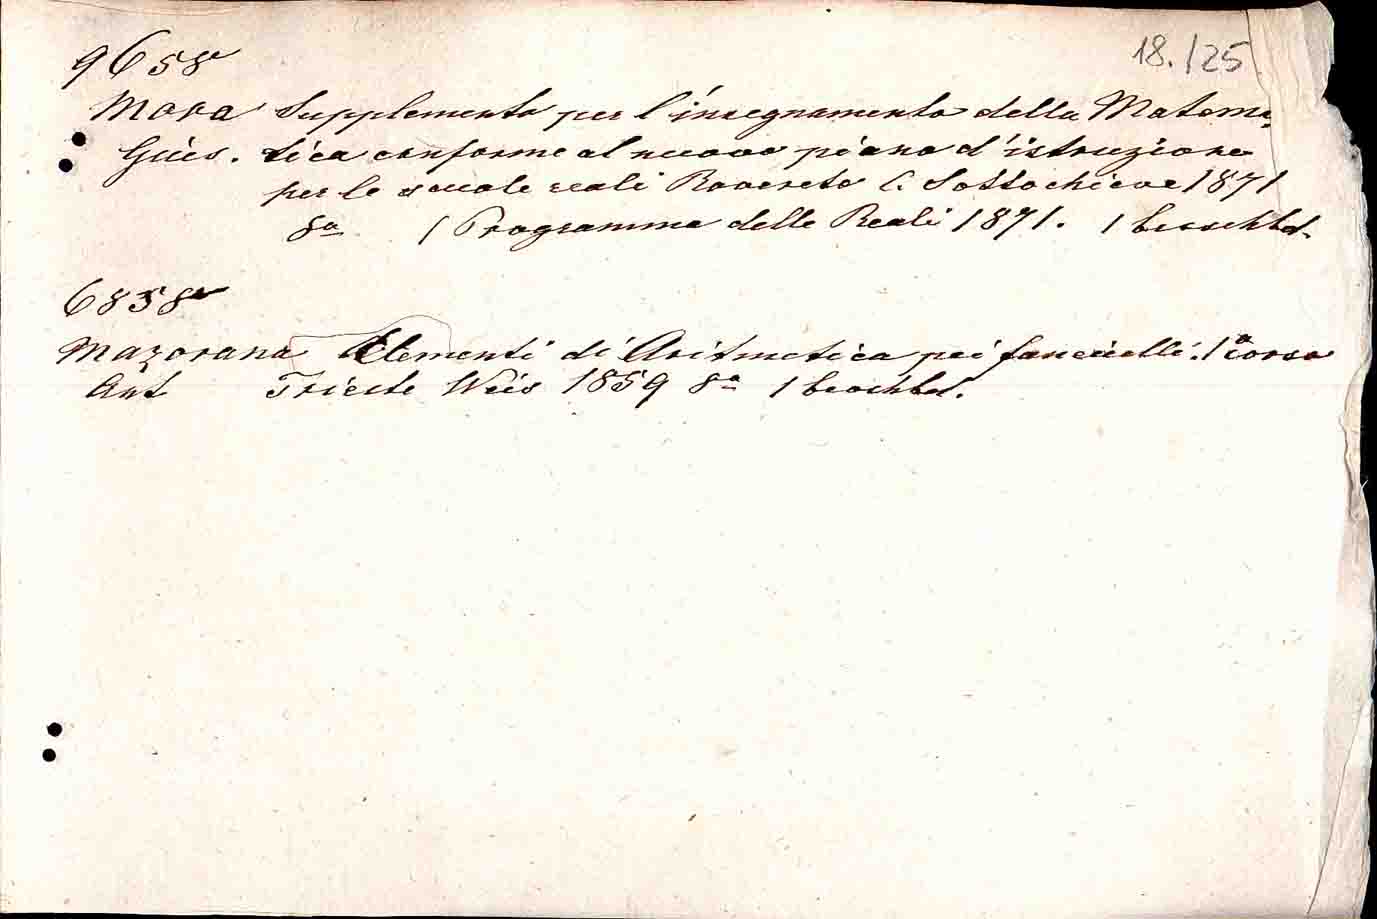 18./25
9658
Mora Supplemento per l'insegnamento della Matema-
Gius. tica conforme al nuovo piano d'istruzione
per le scuole reali Rovereto C. Sottochiesa 1871
8° (Programma delle Reali 1871. 1 broschbd.
6858
Mazorana Elementi di Aritmetica pei fanciulli. 1° corso
Ant Trieste Weis 1859 8° 1 broschbd.